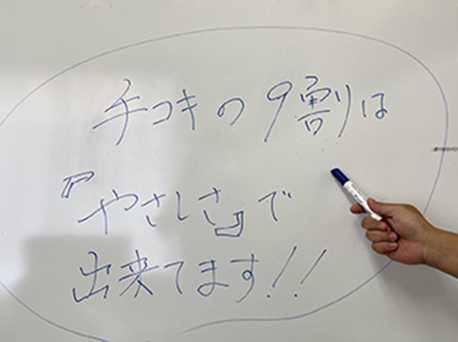 チコキの9割は
『やさしさ』で
出来てます!!